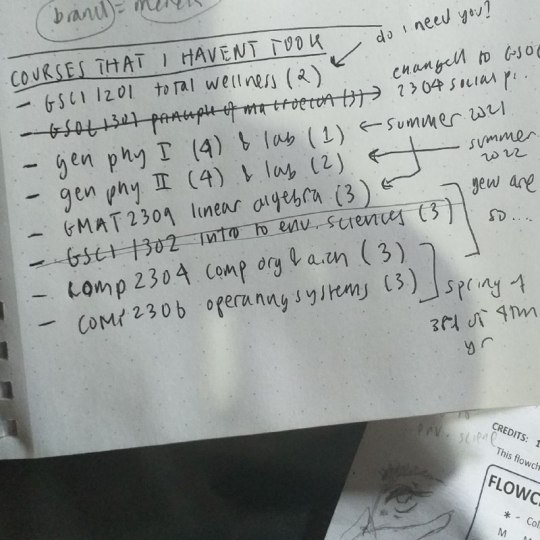 branch = 
COURSES THAT I HAVENT TOOK
do i need you?
- GSCI 1201 total wellness (2)
- GSOC 1301 principle of macroecon (3) → changed to GSOC
2304 social p..
- gen phy I (4) & lab (1) ← summer 2021
- gen phy II (4) & lab (2) ← summer
2022
- GMAT2309 linear algebra (3)
- GSCI 1302 intro to env. sciences (3)
yew are
so....
- comp 2304 comp org & arch (3)
- comp 2306 operating systems (3)
spring of
3rd or 4th
yr
env. science
CREDITS: 1
This flowch
FLOWC
* - Col
M